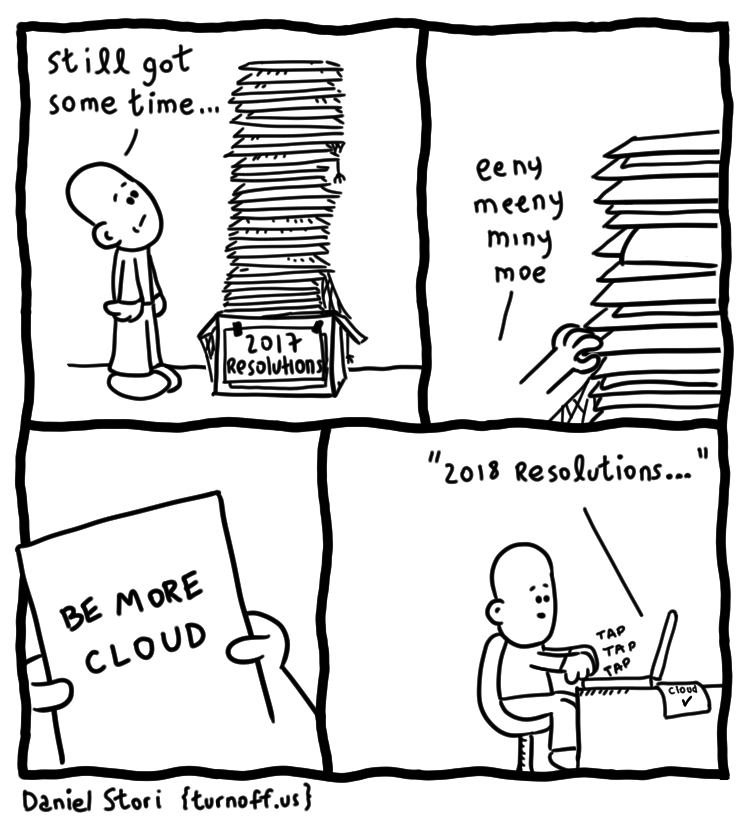 still got
some time...
2017
Resolutions
eeny
meeny
miny
moe
BE MORE
CLOUD
"2018 Resolutions..."
TAP
TAP
TAP
cloud
✓
Daniel Stori {turnoff.us}